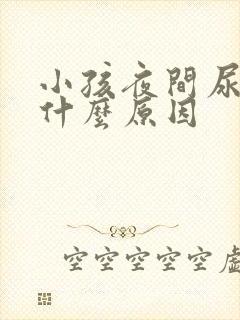 小孩夜間尿
什麼原因
空空空空空虛